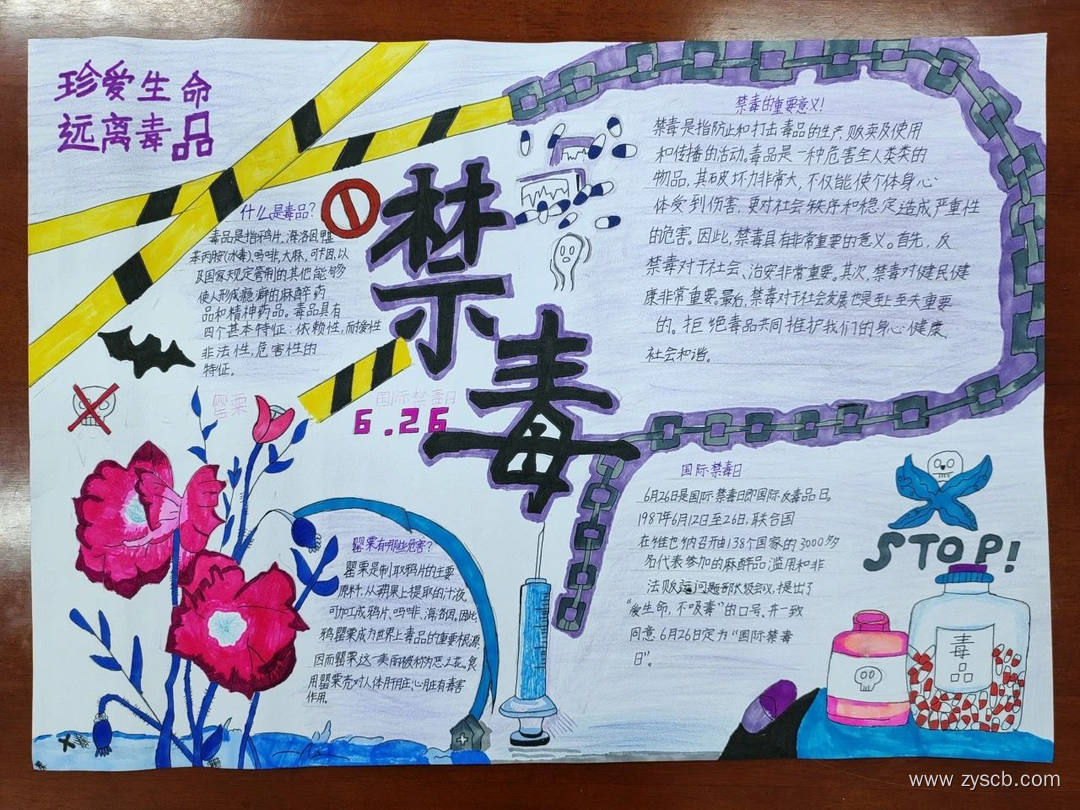 珍爱生命
远离毒品
什么是毒品?
毒品是指鸦片,海洛因,甲基
苯丙胺(冰毒),吗啡,大麻,可卡因,以
及国家规定管制的其他能够
使人形成瘾癖的麻醉药
品和精神药品。毒品具有
四个基本特征:依赖性,耐接性
非法性,危害性的
特征。
禁毒
禁毒的重要意义!
禁毒是指防止和打击毒品的生产,贩卖及使用
和传播的活动。毒品是一种危害全人类类的
物品,其破坏力非常大,不仅能使个体身心
体受到伤害,更对社会秩序和稳定造成严重性
的危害。因此,禁毒具有非常重要的意义。首先,反
禁毒对于社会、治安非常重要。其次,禁毒对健民健
康非常重要。最后,禁毒对于社会发展也是至至关重要
的。拒绝毒品共同维护我们的身心健康,
社会和谐。
罂粟
国际禁毒日
6.26
罂粟有哪些危害?
罂粟是制取鸦片的主要
原料,从蒴果上提取的汁液,
可加工成鸦片,吗啡,海洛因。因此
鸦罂粟成为世界上毒品的重要根源,
因而罂粟这一美丽被称为恶之花。食
用罂粟壳对人体肝脏,心脏有毒害
作用。
国际禁毒日
6月26日是国际禁毒日即国际反毒品日。
1987年6月12日至26日,联合国
在维也纳召开由138个国家的3000多
名代表参加的麻醉品滥用和非
法贩运问题部长级会议,提出了
“爱生命,不吸毒”的口号,并一致
同意6月26日定为“国际禁毒
日”。
STOP!
毒
品
www.zyscb.com